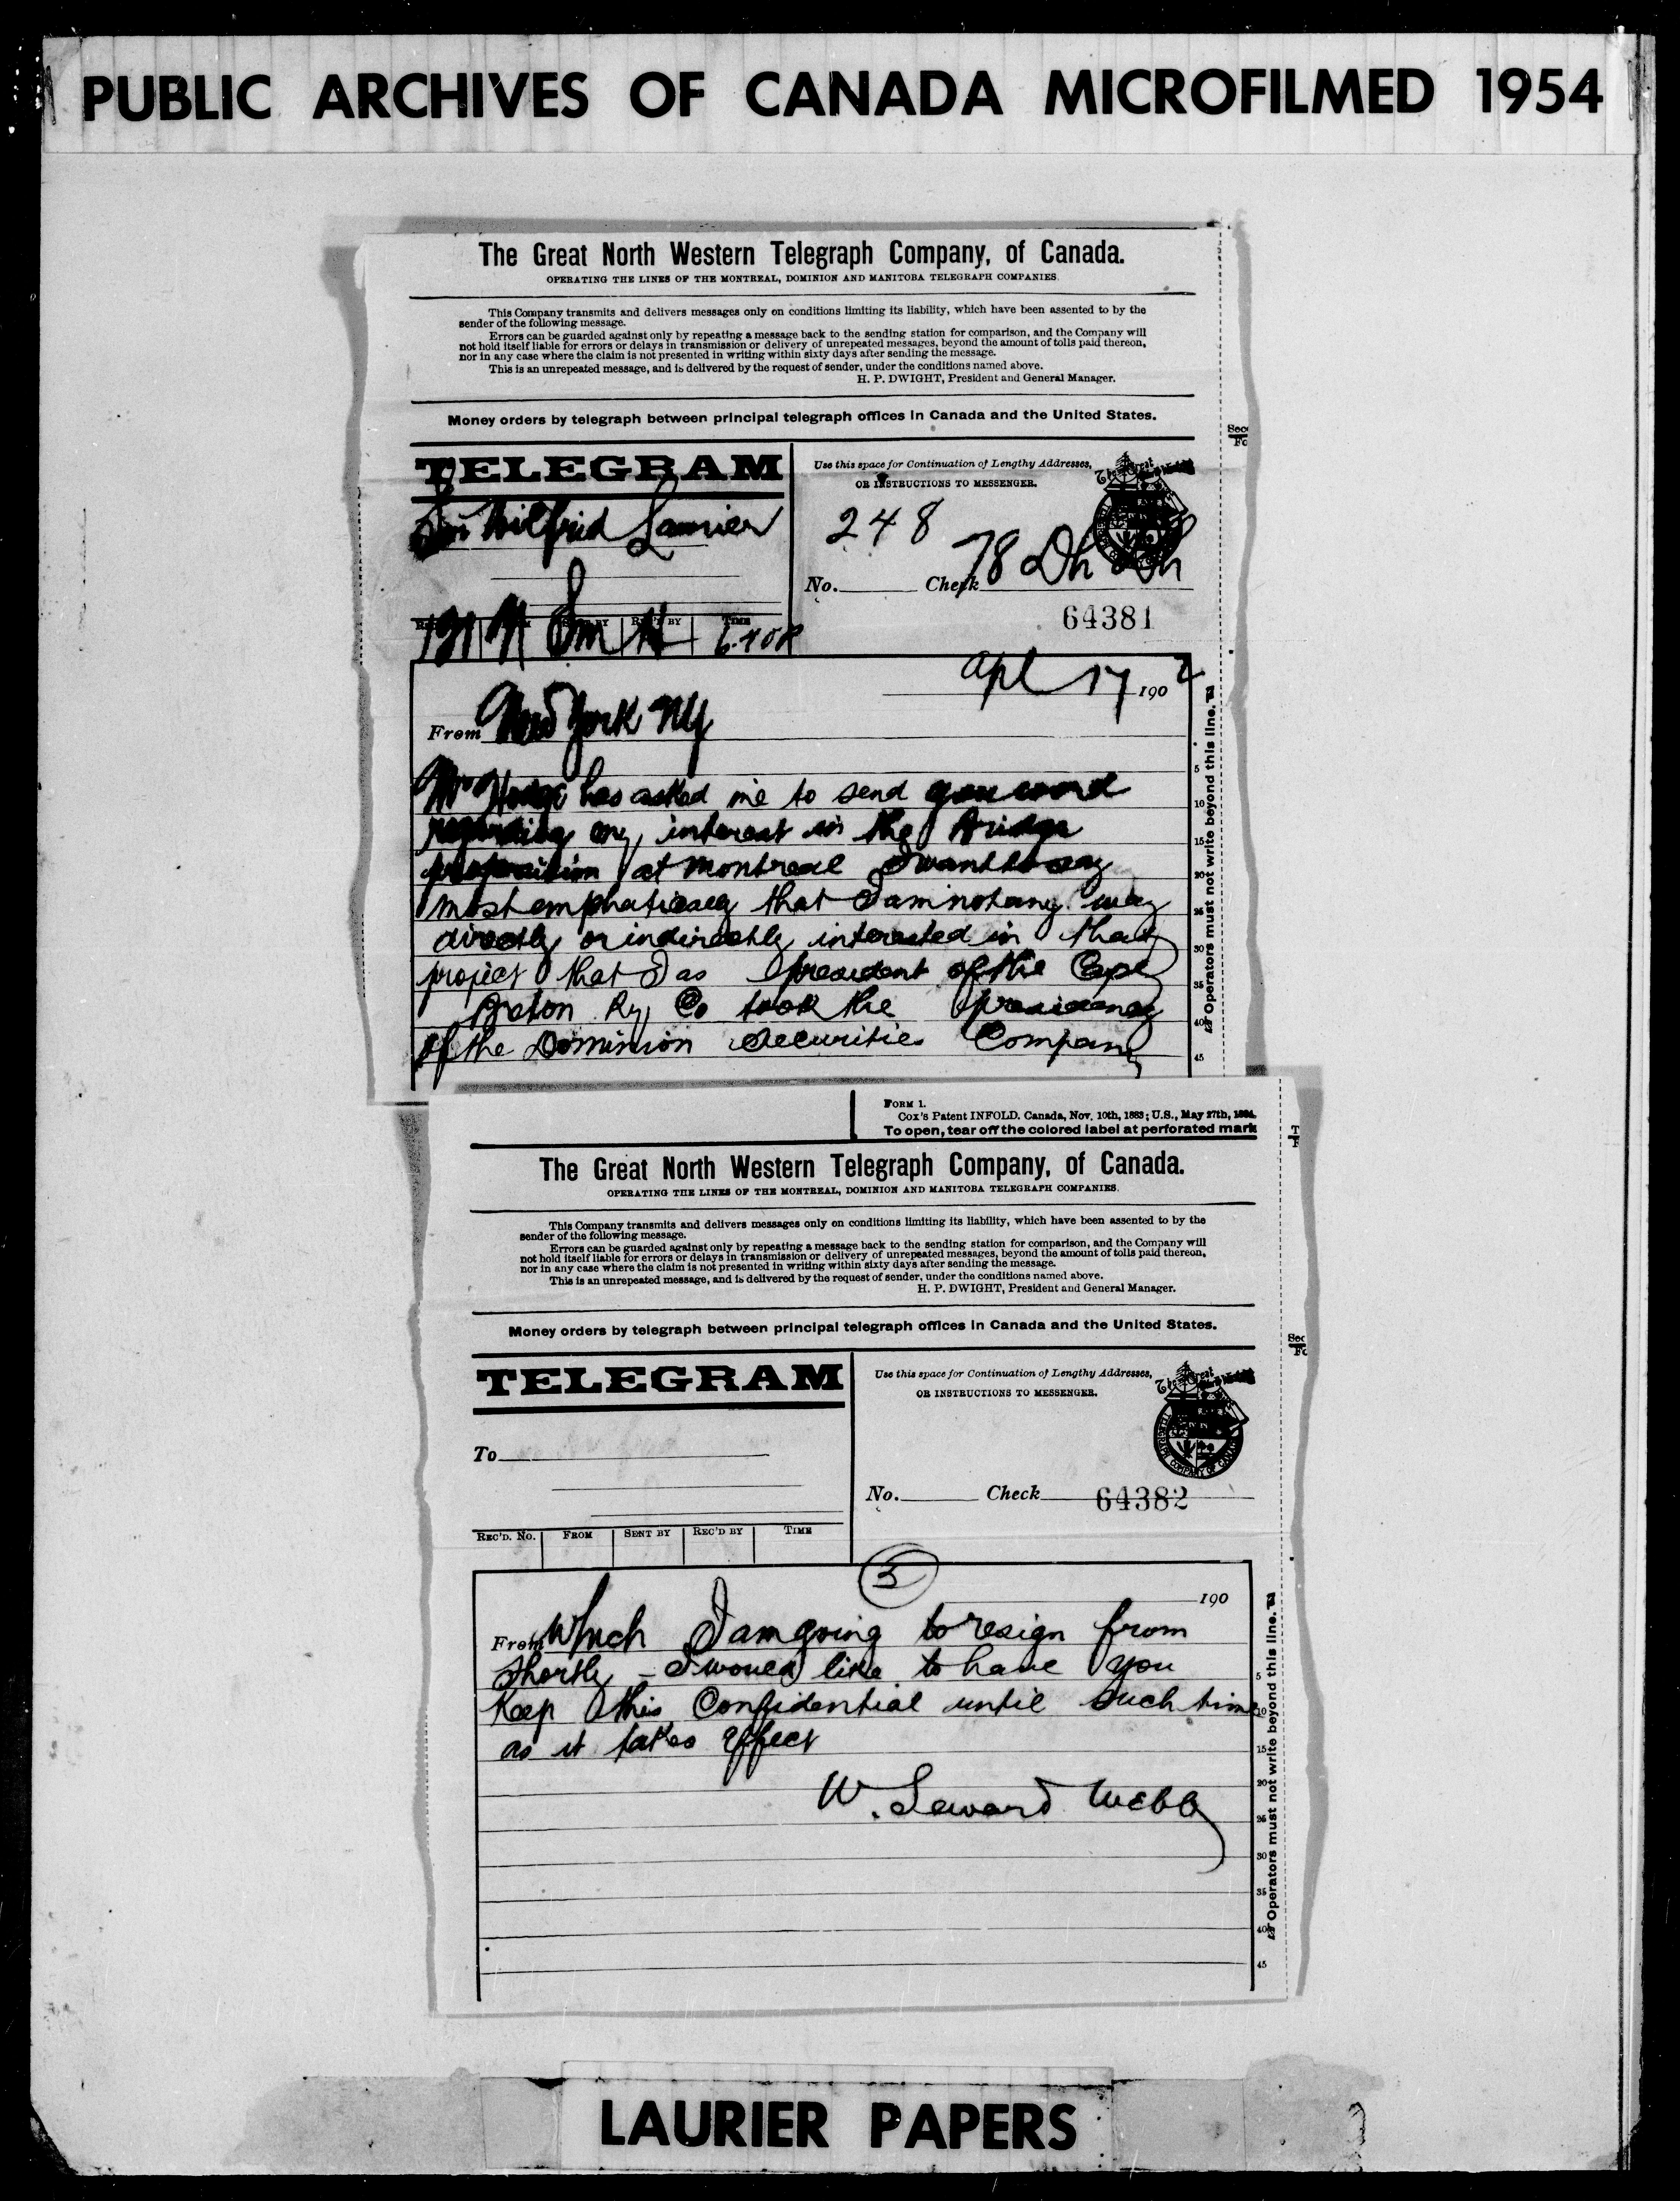 PUBLIC ARCHIVES OF CANADA MICROFILMED 1954
The Great North Western Telegraph Company, of Canada.
OPERATING THE LINES OF THE MONTREAL, DOMINION AND MANITOBA TELEGRAPH COMPANIES.
This Company transmits and delivers messages only on conditions limiting its liability, which have been assented to by the
sender of the following message.
Errors can be guarded against only by repeating a message back to the sending station for comparison, and the Company will
not hold itself liable for errors or delays in transmission or delivery of unrepeated messages, beyond the amount of tolls paid thereon,
nor in any case where the claim is not presented in writing within sixty days after sending the message.
This is an unrepeated message, and is delivered by the request of sender, under the conditions named above.
H. P. DWIGHT, President and General Manager.
Money orders by telegraph between principal telegraph offices in Canada and the United States.
TELEGRAM
Sir Wilfrid Laurier
Use this space for Continuation of Lengthy Addresses,
OR INSTRUCTIONS TO MESSENGER.
248
No. Check 78 Dh
64381
TIME
apl 17 1902
From New York NY
Mr has asked me to send you word
regarding my interest in the Bridge
proposition at Montreal I want to say
most emphatically that I am not any way
directly or indirectly interested in that
project that I as president of the Cape
Breton Ry Co took the presidency
of the Dominion Securities Company
5
10
15
20
25
30
35
40
45
Operators must not write beyond this line.
FORM 1.
Cox's Patent INFOLD. Canada, Nov. 10th, 1883; U.S., May 27th, 1884.
To open, tear off the colored label at perforated mark
The Great North Western Telegraph Company, of Canada.
OPERATING THE LINES OF THE MONTREAL, DOMINION AND MANITOBA TELEGRAPH COMPANIES.
This Company transmits and delivers messages only on conditions limiting its liability, which have been assented to by the
sender of the following message.
Errors can be guarded against only by repeating a message back to the sending station for comparison, and the Company will
not hold itself liable for errors or delays in transmission or delivery of unrepeated messages, beyond the amount of tolls paid thereon,
nor in any case where the claim is not presented in writing within sixty days after sending the message.
This is an unrepeated message, and is delivered by the request of sender, under the conditions named above.
H. P. DWIGHT, President and General Manager.
Money orders by telegraph between principal telegraph offices in Canada and the United States.
TELEGRAM
Use this space for Continuation of Lengthy Addresses,
OR INSTRUCTIONS TO MESSENGER.
To
No. Check 64382
REC'D. No. FROM SENT BY REC'D BY TIME
190
From Which I am going to resign from
shortly - I would like to have you
Keep this Confidential until such time
as it takes effect
W. Seward Webb
5
10
15
20
25
30
35
40
45
Operators must not write beyond this line.
LAURIER PAPERS